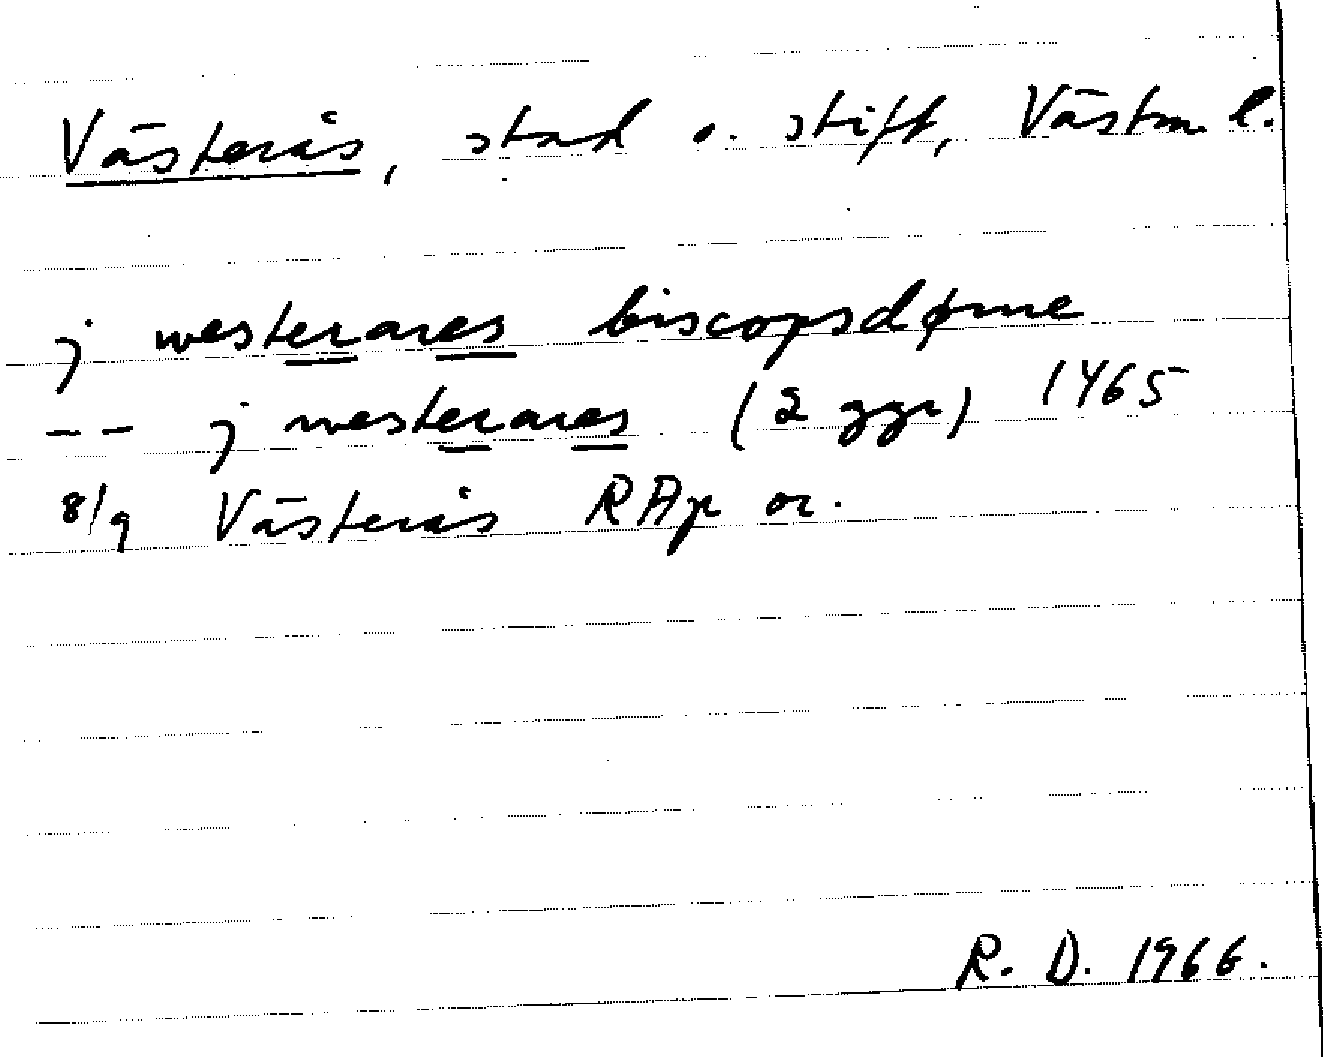 Västerås, stad o. stift, Västm. l.
j westerares biscopsdøme
-- j westerares (2 ggr) 1465
8/9 Västerås RAp or.
R. D. 1966.